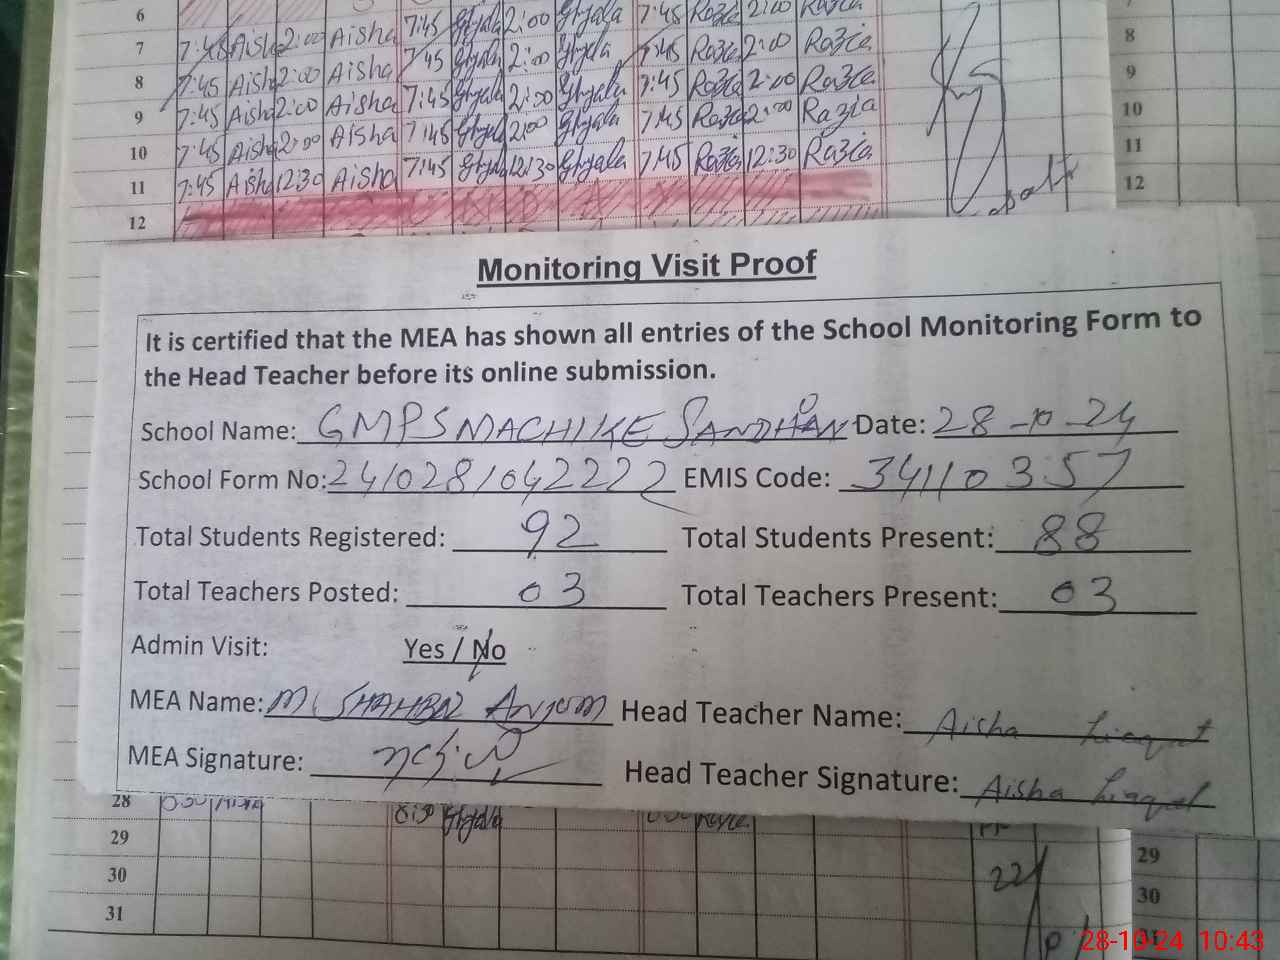 6 7:45 Ghzala 2:00 Ghzala 7:45 Razia 2:00 Razia
7 7:45 Aisha 2:00 Aisha 7:45 Ghzala 2:00 Ghzala 7:45 Razia 2:00 Razia
8 7:45 Aisha 2:00 Aisha 7:45 Ghzala 2:00 Ghzala 7:45 Razia 2:00 Razia
9 7:45 Aisha 2:00 Aisha 7:45 Ghzala 2:00 Ghzala 7:45 Razia 2:00 Razia
10 7:45 Aisha 2:00 Aisha 7:45 Ghzala 12:30 Ghzala 7:45 Razia 12:30 Razia
11 7:45 Aisha 12:30 Aisha
12
8
9
10
11
12
Monitoring Visit Proof
It is certified that the MEA has shown all entries of the School Monitoring Form to
the Head Teacher before its online submission.
School Name: GMPS MACHIKE SANDHAN Date: 28-10-24
School Form No: 2410281042222 EMIS Code: 34110357
Total Students Registered: 92 Total Students Present: 88
Total Teachers Posted: 03 Total Teachers Present: 03
Admin Visit: Yes / No
MEA Name: M SHAHBAZ Anjum Head Teacher Name: Aisha Liaqat
MEA Signature: Head Teacher Signature: Aisha Liaqat
28 8:30 Ghzala
29
30
31
22
29
30
28-10-24 10:43